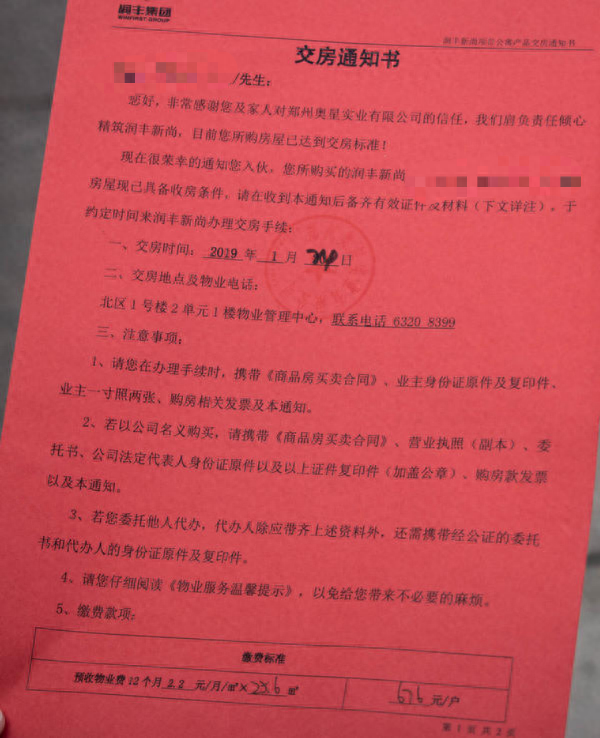 润丰集团
WINFIRST-GROUP
润丰新尚项目公寓产品交房通知书
交房通知书
/先生：
您好，非常感谢您及家人对郑州奥星实业有限公司的信任，我们肩负责任倾心
精筑润丰新尚，目前您所购房屋已达到交房标准！
现在很荣幸的通知您入伙，您所购买的润丰新尚
房屋现已具备收房条件，请在收到本通知后备齐有效证件及材料（下文详注），于
约定时间来润丰新尚办理交房手续：
一、交房时间：2019 年 1 月 日
二、交房地点及物业电话：
北区1号楼2单元1楼物业管理中心，联系电话 6320 8399
三、注意事项：
1、请您在办理手续时，携带《商品房买卖合同》、业主身份证原件及复印件、
业主一寸照两张、购房相关发票及本通知。
2、若以公司名义购买，请携带《商品房买卖合同》、营业执照（副本）、委
托书、公司法定代表人身份证原件以及以上证件复印件（加盖公章）、购房款发票
以及本通知。
3、若您委托他人代办，代办人除应带齐上述资料外，还需携带经公证的委托
书和代办人的身份证原件及复印件。
4、请您仔细阅读《物业服务温馨提示》，以免给您带来不必要的麻烦。
5、缴费款项：
缴费标准
预收物业费 12个月 2.2 元/月/㎡× ㎡ 676 元/户
第 1 页 共 2 页